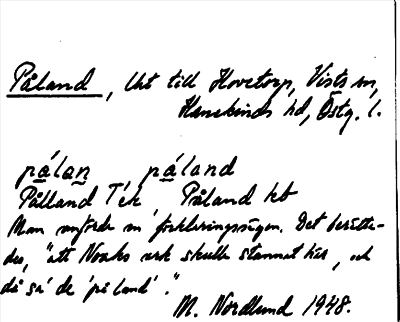 Påland, Uht till Hovetorp, Vists sn,
Hanekinds hd, Östg. l.
pálan páland
Pålland T.ék Påland kb
Man anförde en förklaringssägen. Det berätta-
des, "att Noaks ark skulle stannat här, och
då sa' de 'på land'."
M. Nordlund 1948.